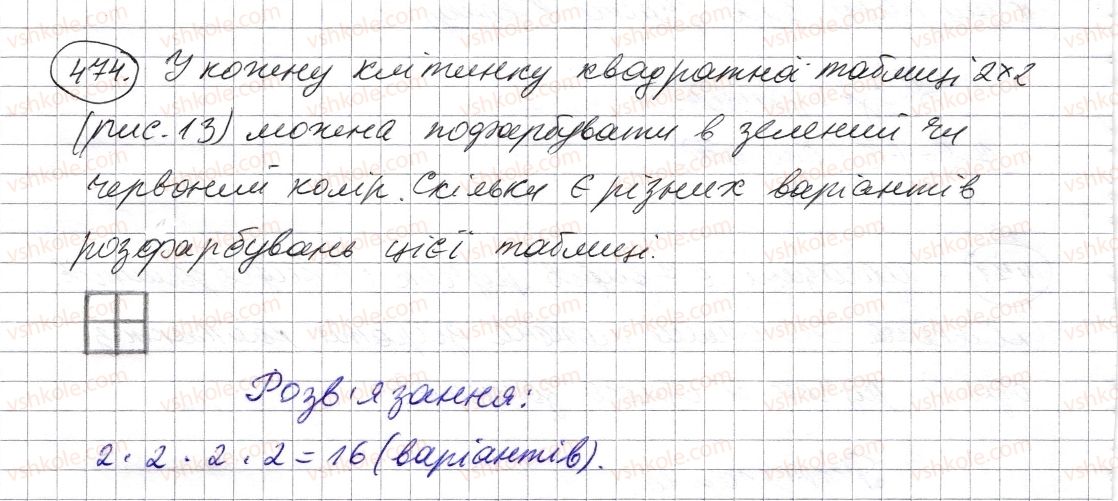 474. У кожну клітинку квадратної таблиці 2×2
(рис. 13) можна пофарбувати в зелений чи
червоний колір. Скільки є різних варіантів
розфарбувань цієї таблиці.
Розв'язання:
2 · 2 · 2 · 2 = 16 (варіантів).